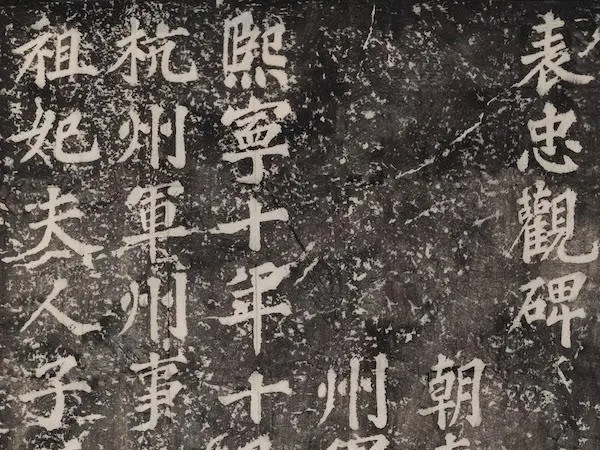 表忠觀碑
朝
州
熙寧十年十
杭州軍州事
祖妃夫人子